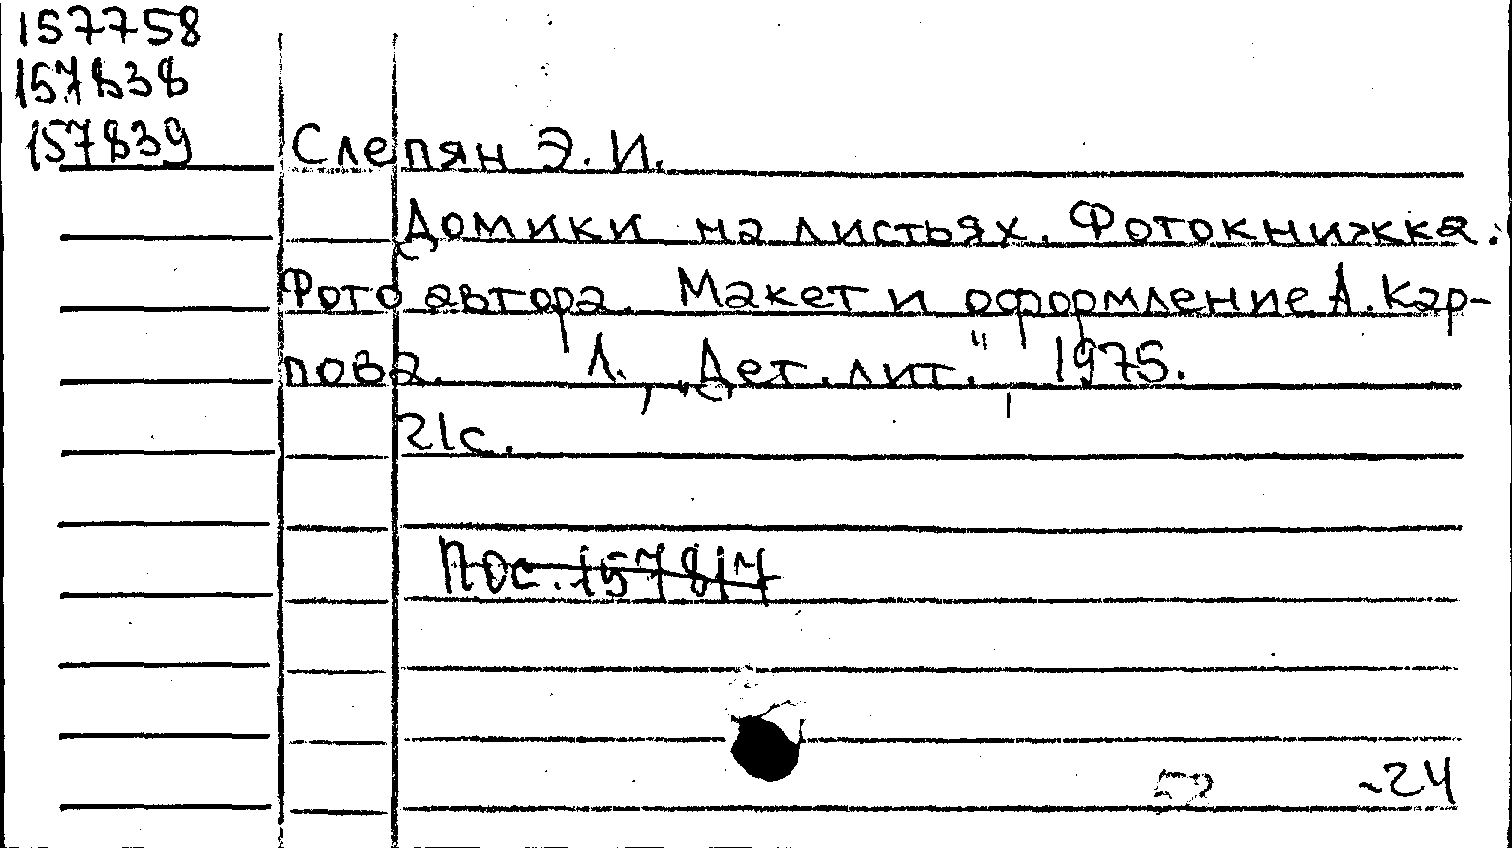 157758
157838
157839
Слепян Э. И.
Домики на листьях. Фотокнижка.
Фото автора. Макет и оформление А. Кар-
пова. Л., „Дет. лит.", 1975.
21с.
Пос. 157817
-24